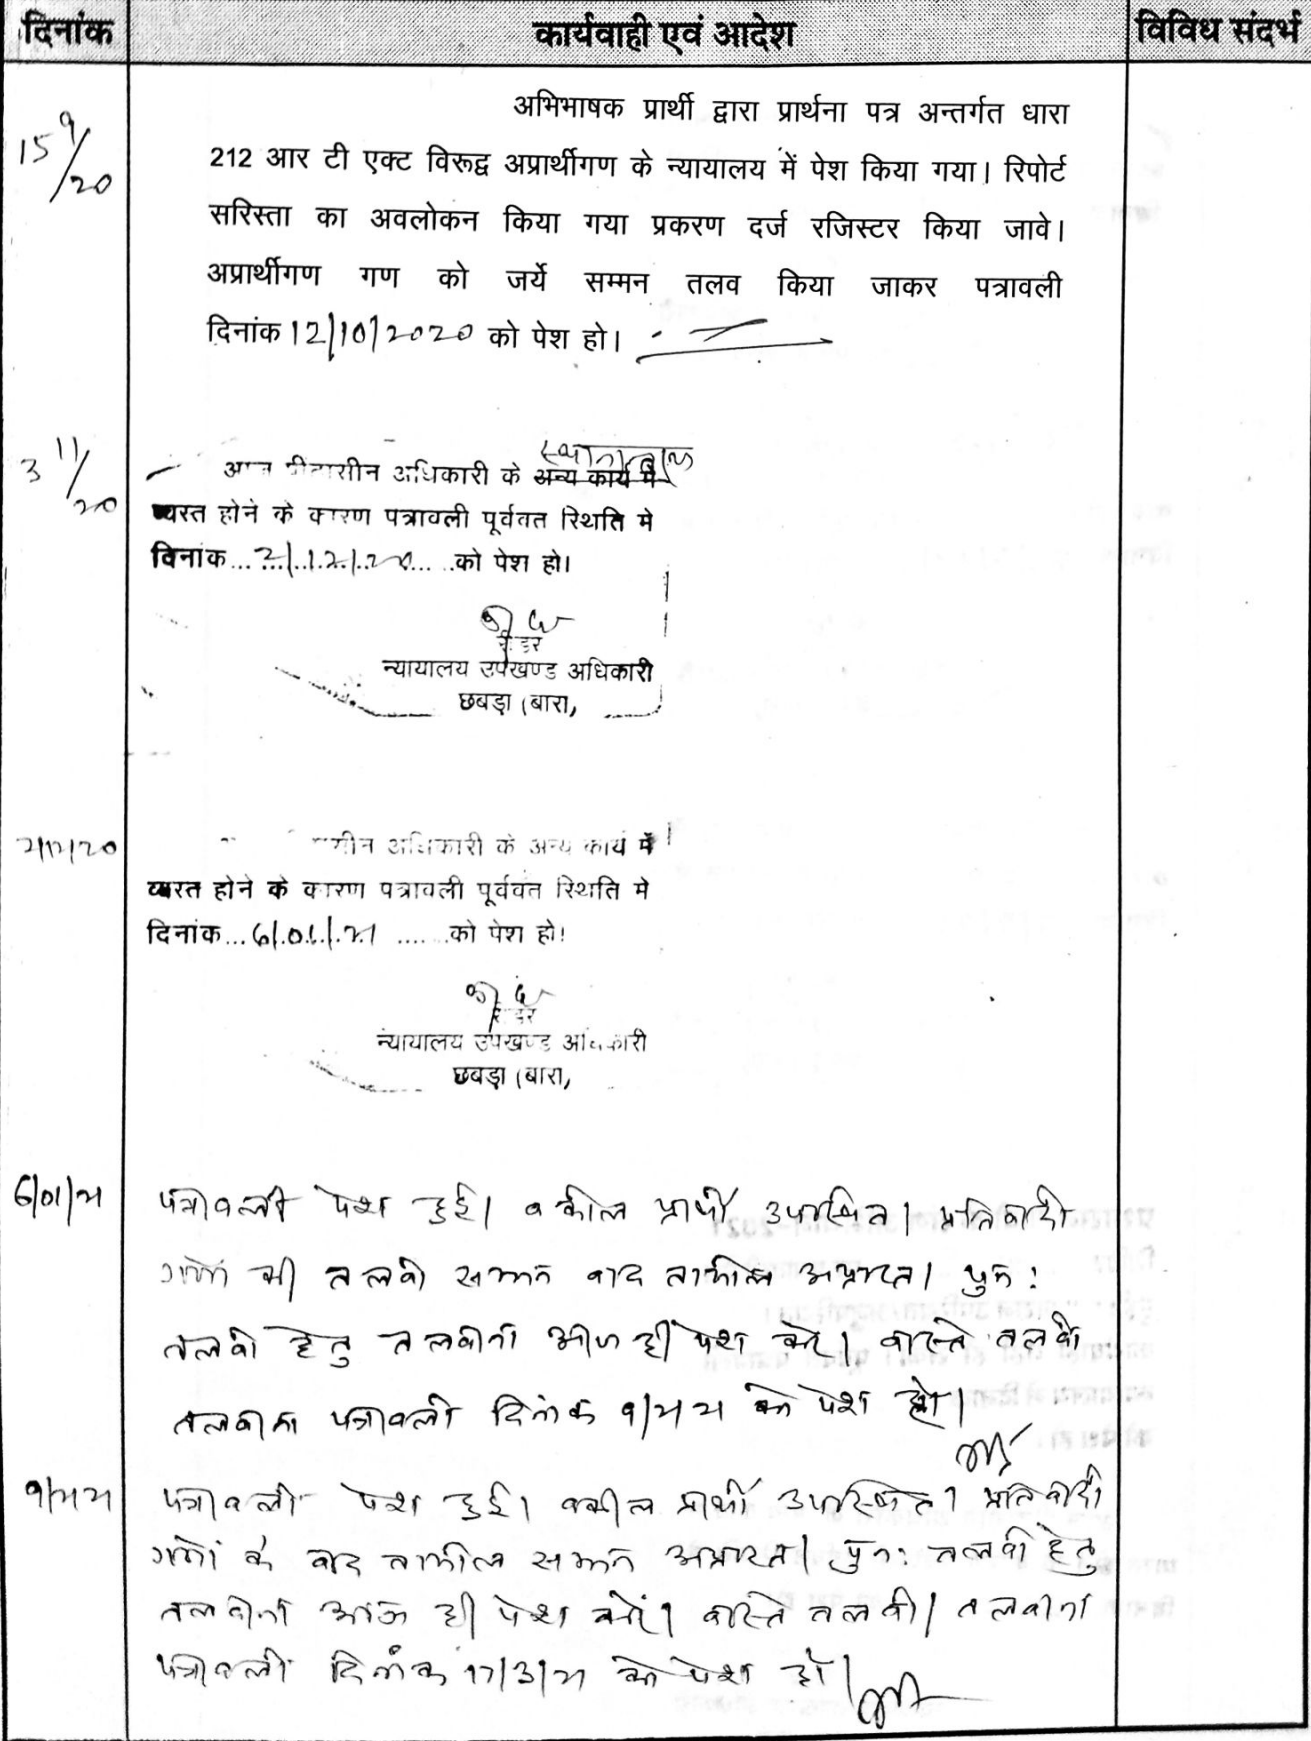 दिनांक कार्यवाही एवं आदेश विविध संदर्भ
15/9/20 अभिभाषक प्रार्थी द्वारा प्रार्थना पत्र अन्तर्गत धारा
212 आर टी एक्ट विरूद्व अप्रार्थीगण के न्यायालय में पेश किया गया। रिपोर्ट
सरिस्ता का अवलोकन किया गया प्रकरण दर्ज रजिस्टर किया जावे।
अप्रार्थीगण गण को जर्ये सम्मन तलव किया जाकर पत्रावली
दिनांक 12/10/2020 को पेश हो।
3/11/20 आज पीठासीन अधिकारी के अन्य कार्य मे
व्यस्त होने के कारण पत्रावली पूर्ववत स्थिति मे
दिनांक...2/12/20.....को पेश हो।
रीडर
न्यायालय उपखण्ड अधिकारी
छबड़ा (बारा,
2/12/20 सीन अधिकारी के अन्य कार्य में
व्यस्त होने के कारण पत्रावली पूर्ववत स्थिति मे
दिनांक...6/01/21 ......को पेश हो!
रीडर
न्यायालय उपखण्ड अधिकारी
छबड़ा (बारा,
6/01/21 पत्रावली पेश हुई। वकील प्रार्थी उपस्थित। प्रतिवादी
गणों की तलवी सम्मन वाद तामील अप्राप्त। पुन:
तलवी हेतु तलवाना आज ही पेश करे। वास्ते तलवी
तलवाना पत्रावली दिनांक को पेश हो।
पत्रावली पेश हुई। वकील प्रार्थी उपस्थित। प्रतिवादी
गणों के वाद तामील सम्मन अप्राप्त। पुन: तलवी हेतु
तलवाना आज ही पेश करें। वास्ते तलवी। तलवाना
पत्रावली दिनांक 17/3/21 को पेश हो।